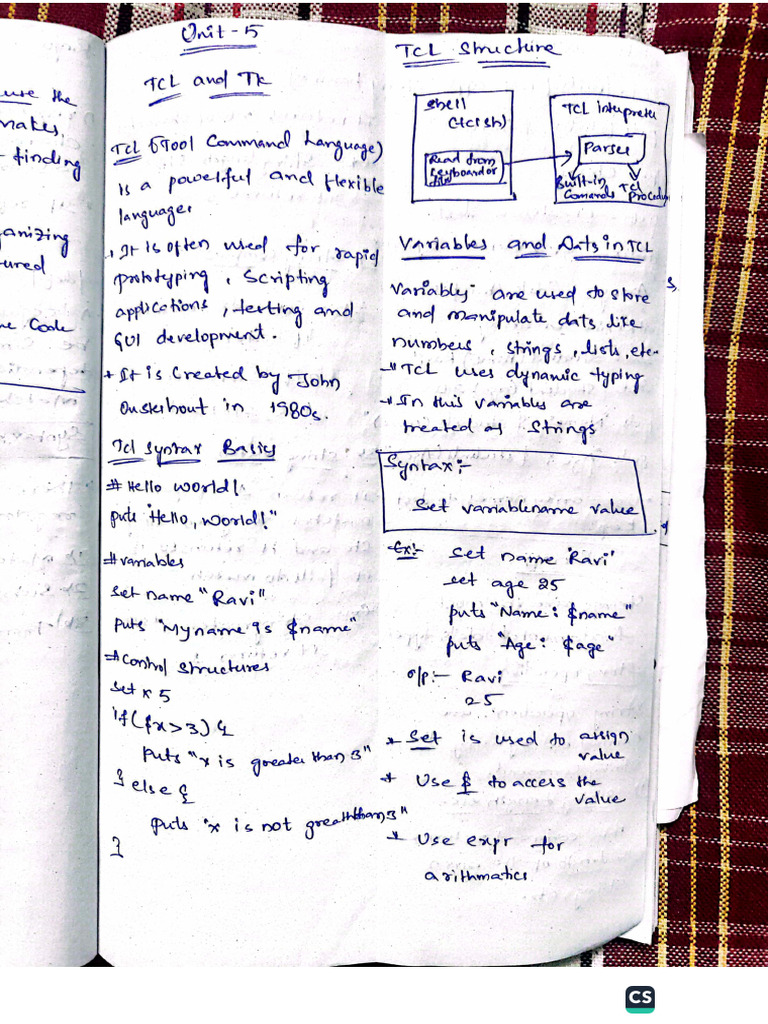 use the
makes,
finding
anizing
ured
Code
Unit-5
TCL and Tk
Tcl (Tool Command Language)
is a powerful and flexible
language.
It is often used for rapid
prototyping, Scripting
applications, testing and
GUI development.
* It is Created by John
Ousterhout in 1980s.
Tcl Syntax Basics
# Hello world!
puts "Hello, world!"
# variables
set name "Ravi"
puts "My name is $name"
# Control Structures
set x 5
if ($x > 3) {
puts "x is greater than 3"
} else {
puts "x is not greaththan 3"
}
TCL Structure
Shell
(tclsh)
Read from
keyboard or
file
TCL interpreter
Parser
Built-in
Comands
Tcl
procedur
Variables and Data in TCL
Variables are used to store
and manipulate data like
numbers, strings, lists, etc.
TCL uses dynamic typing
In this variables are
treated as Strings
Syntax:-
Set variablename value
Ex:- set name 'Ravi'
set age 25
puts "Name: $name"
puts "Age: $age"
o/p:- Ravi
25
* Set is used to assign
value
* Use $ to access the
value
* Use expr for
arithmatics
CS